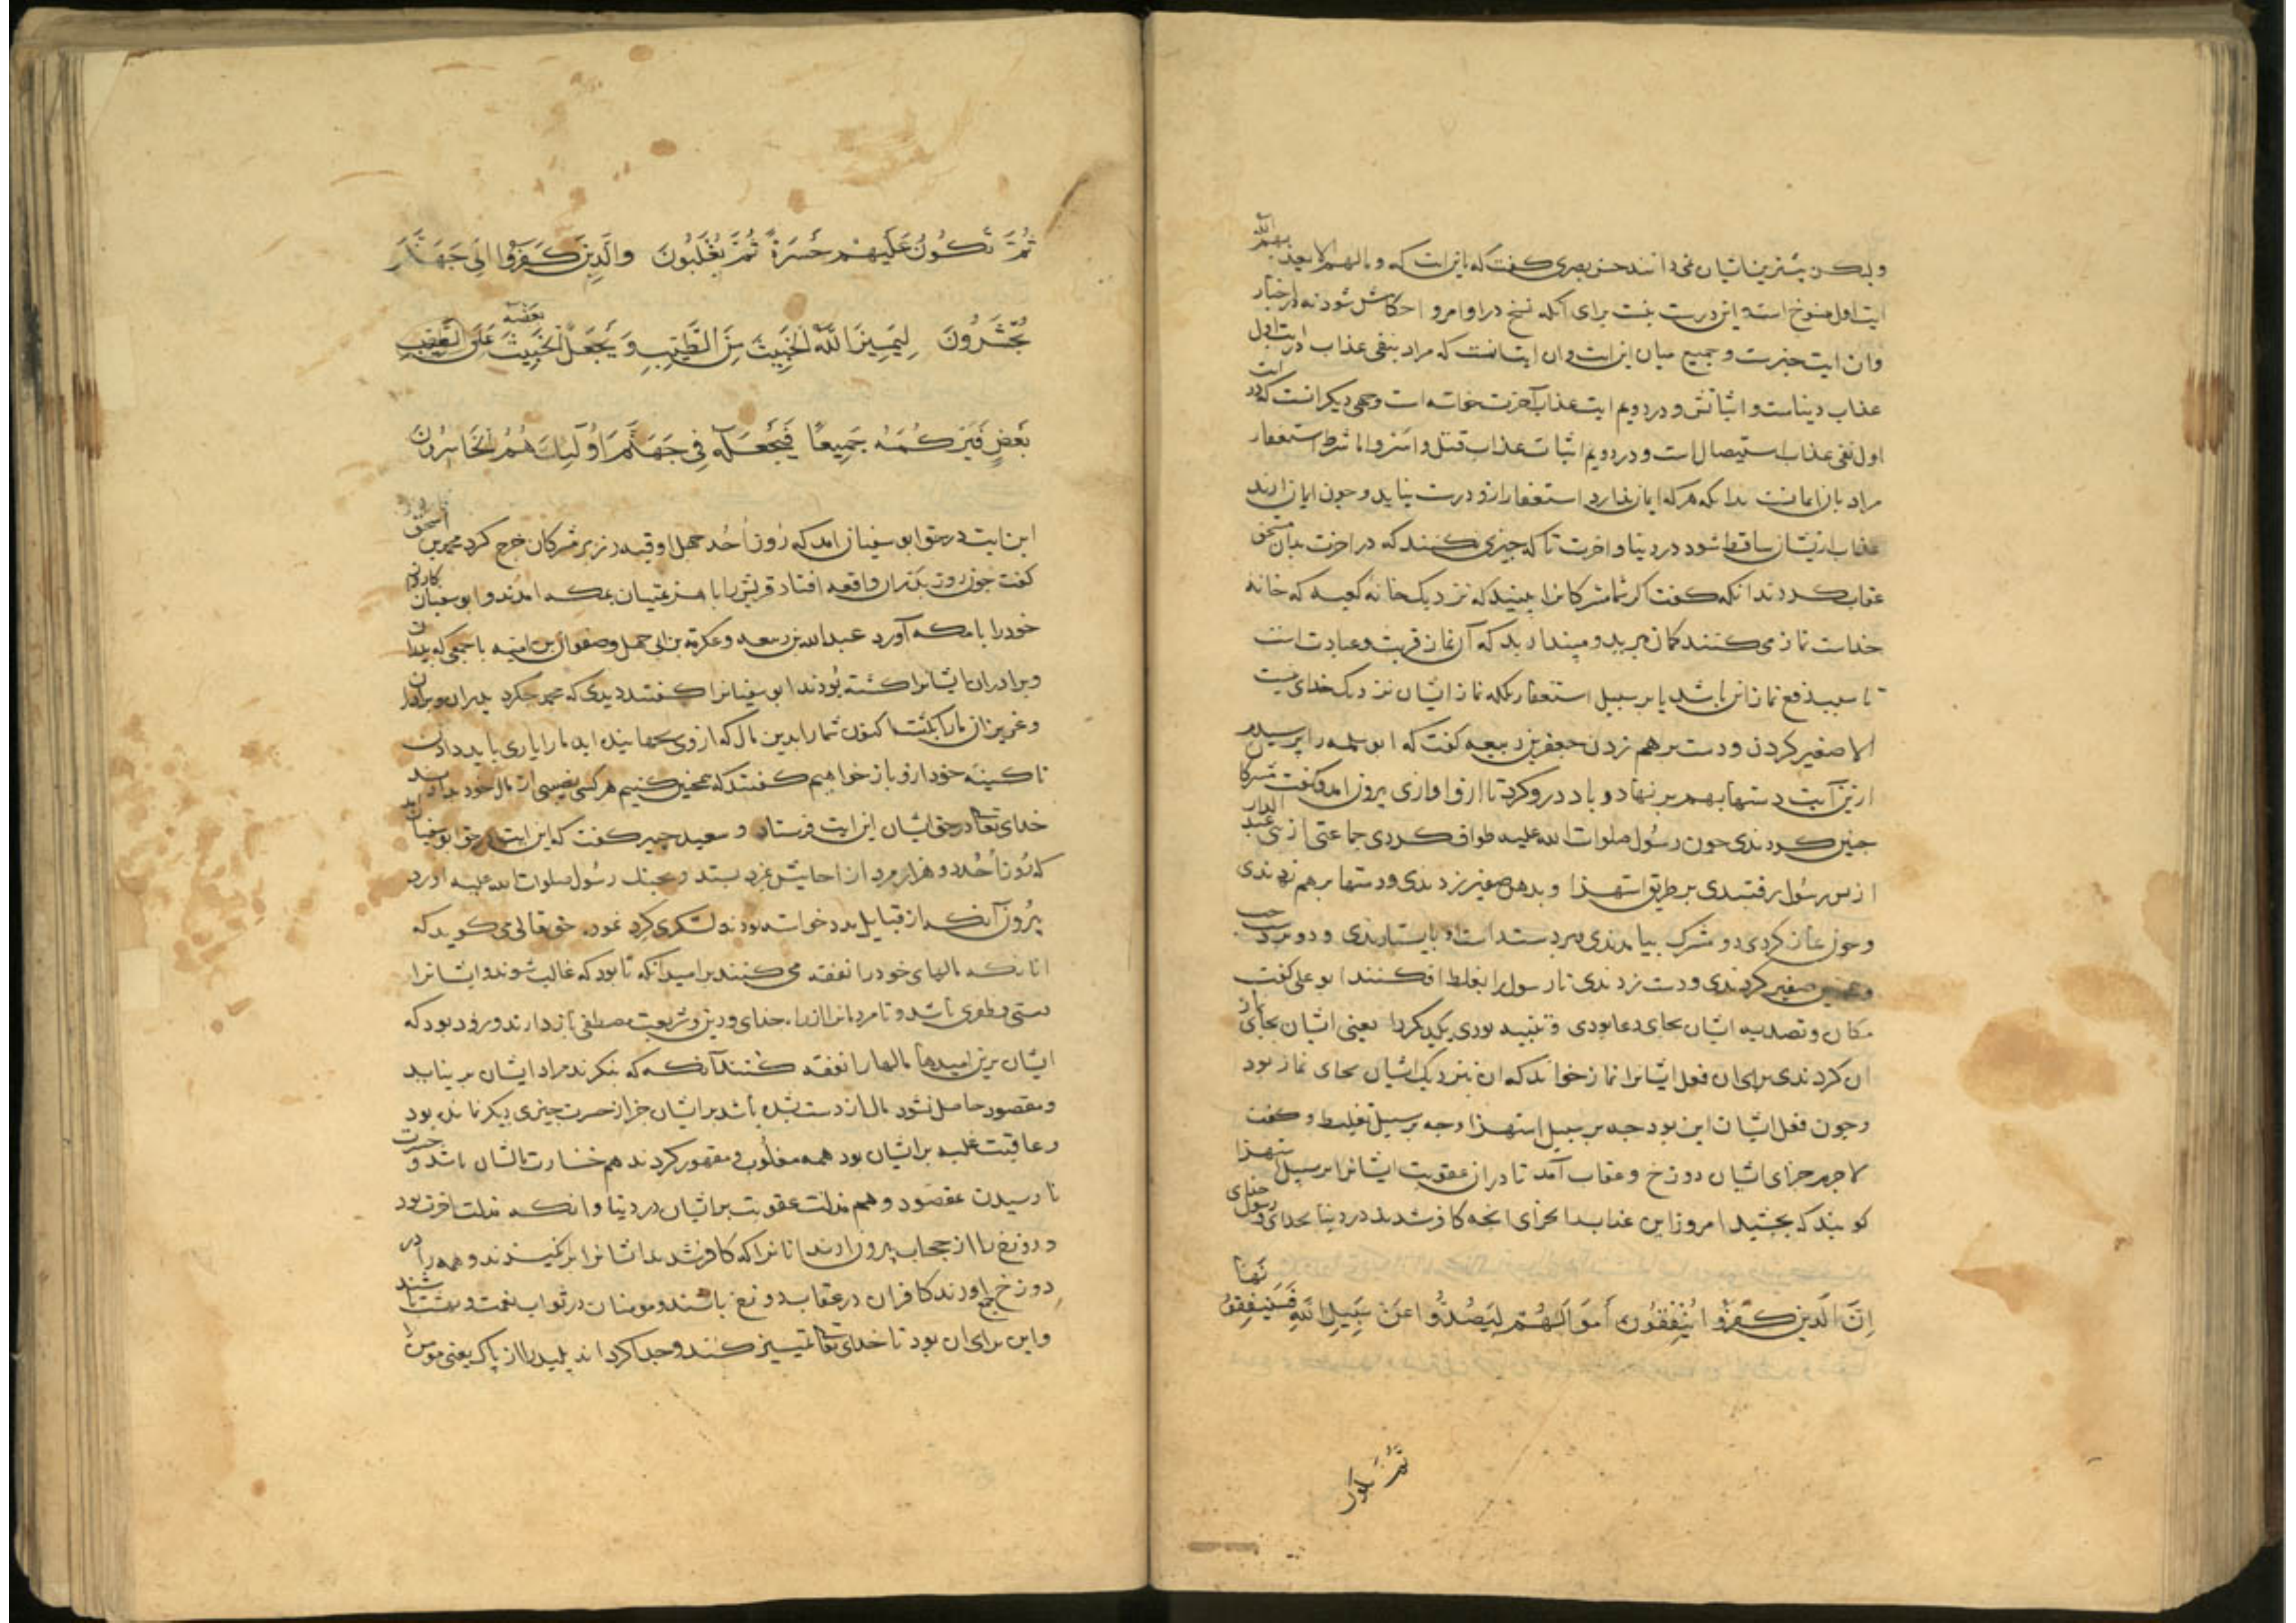 ولیکن بیشترین ایشان نمی دانند حسن بصری گفت که این ایت که و ما لهم الا یعذبهم الله
ایت اول منسوخ است و این درست نیست برای آنکه نسخ در اوامر و احکامش شود نه در اخبار
وان ایت خبرست و جمع میان این ایت وان ایت انست که مراد بنفی عذاب در ایت اول
عذاب دنیاست و اثباتش در دویم ایت عذاب آخرت خواسته است و وجهی دیکر انست که در ایت
اول نفی عذاب استیصال است و در دویم اثبات عذاب قتل و اسر و اما شرط استغفار
مراد بان ایمانست بدانکه هر که ایمان ندارد استغفار ازو درست نیاید و جون ایمان ارند
عذاب ازیشان ساقط شود در دنیا و اخرت تا که جیزی نکنند که در اخرت بدان مستحق
عقاب کردند انکه گفت اکر شما مشرکانرا ببینید که نزدیک خانه کعبه که خانه
خداست نماز می کنند کمان مبرید و مپندارید که آن نماز قربت و عبادت است
تا سبب دفع نماز ان باشد یا بر سبیل استغفار بلکه نماز ایشان نزدیک خدای نیست
الا صفیر کردن و دست بر هم زدن جعفر بن ربیعه کفت که ابو سلمه را پرسیدم
ازین آیت دستها بهم بر نهاد و باد درو کرد تا ازو اوازی بیرون امد و کفت مشرکان
جنین کردندی جون رسول صلوات الله علیه طواف کردی جماعتی از بنی عبد الدار
از پس رسول برفتندی بر طریق استهزا و بدهن صفیر زدندی و دستها بر هم زدندی
و جون نماز کردی دو مشرک بیامدندی و بر دست راست او بایستادندی و دو بر دست جب
و همجنین صفیر کردندی و دست زدندی تا رسول را بغلط افکنند ابو علی کفت
مکا و تصدیه ایشان بجای دعا بودی و تنبیه بودی یکدیکر را یعنی ایشان بجای نماز
ان کردندی برای ان فعل ایشانرا نماز خواند که ان بنزدیک ایشان بجای نماز بود
و جون فعل ایشان این بود جه بر سبیل استهزا و جه بر سبیل تغلیط و کفت
لاجرم جزای ایشان دوزخ و عقاب آمد تا دران عقوبت ایشانرا بر سبیل استهزا
کویند که بجشید امروز این عذاب را بجزای انجه کافر شدید در دنیا بخدای و رسول خدای
إِنَّ الَّذِينَ كَفَرُوا يُنْفِقُونَ أَمْوَالَهُمْ لِيَصُدُّوا عَنْ سَبِيلِ اللَّهِ فَسَيُنْفِقُونَهَا
ثُمَّ تكون
ثُمَّ تَكُونُ عَلَيْهِمْ حَسْرَةً ثُمَّ يُغْلَبُونَ وَالَّذِينَ كَفَرُوا إِلَى جَهَنَّمَ
يُحْشَرُونَ لِيَمِيزَ اللَّهُ الْخَبِيثَ مِنَ الطَّيِّبِ وَيَجْعَلَ الْخَبِيثَ بَعْضَهُ عَلَى
بَعْضٍ فَيَرْكُمَهُ جَمِيعًا فَيَجْعَلَهُ فِي جَهَنَّمَ أُولَٰئِكَ هُمُ الْخَاسِرُونَ
این ایت در حق ابو سفیان امد که روز أحد جهل اوقیه زر بر مشرکان خرج کرد محمد بن اسحق
کفت جون روز بدر ان واقعه افتاد قریش را با هزیمتیان بمکه امدند و ابو سفیان کاروان
خود را با مکه آورد عبدالله بن ربیعه و عکرمة بن ابی جهل و صفوان بن امیه با جمعی که پدران
و برادران ایشانرا کشته بودند ابو سفیانرا کفتند دیدی که محمد جه کرد پدران و برادران
و عزیزان مارا بکشت اکنون شمارا بدین مال که ازوی بجهانیده اید مارا یاری باید دادن
تا کینه خود ازو باز خواهیم کفتند که همجنین کنیم هر کسی نصیبی از مال خود بدادند
خدای تعالی در حق ایشان این ایت فرستاد و سعید جبیر کفت که این ایت در حق ابو سفیان امد
که روز أحد دو هزار مرد از احابیش بمزد بستد و بجنک رسول صلوات الله علیه اورد
بیرون آنکه از قبایل مدد خواسته بود حق تعالی می کوید که
انانکه مالهای خود را نفقه می کنند بر امید انکه تا بود که غالب شوند و ایشانرا
دستی و ظفری باشد و تا مردمانرا از راه خدای و دین و شریعت مصطفی باز دارند و زود بود که
ایشان برین امیدها مالها را نفقه کنند آنکه که بنکرند مراد ایشان بر نیاید
و مقصود حاصل نشود مال از دست شده باشد بر ایشان جز از حسرت جیزی دیکر نمانده بود
و عاقبت غلبه بر ایشان بود همه مغلوب و مقهور کردند هم خسارت مالشان باشد و حسرت
نا رسیدن بمقصود و هم مذلت عقوبت بر ایشان در دنیا و انکه مذلت اخرت بود
و دوزخ را از حجاب بیرون ارند انانرا که کافر شدند ایشانرا برانکیزند و همه را در
دوزخ جمع اورند کافران در عقاب دوزخ باشند و مومنان در ثواب نعمت و بهشت باشند
و این برای ان بود تا خدای تعالی تمییز کند و جدا کرداند پلید را از پاک یعنی مومن را